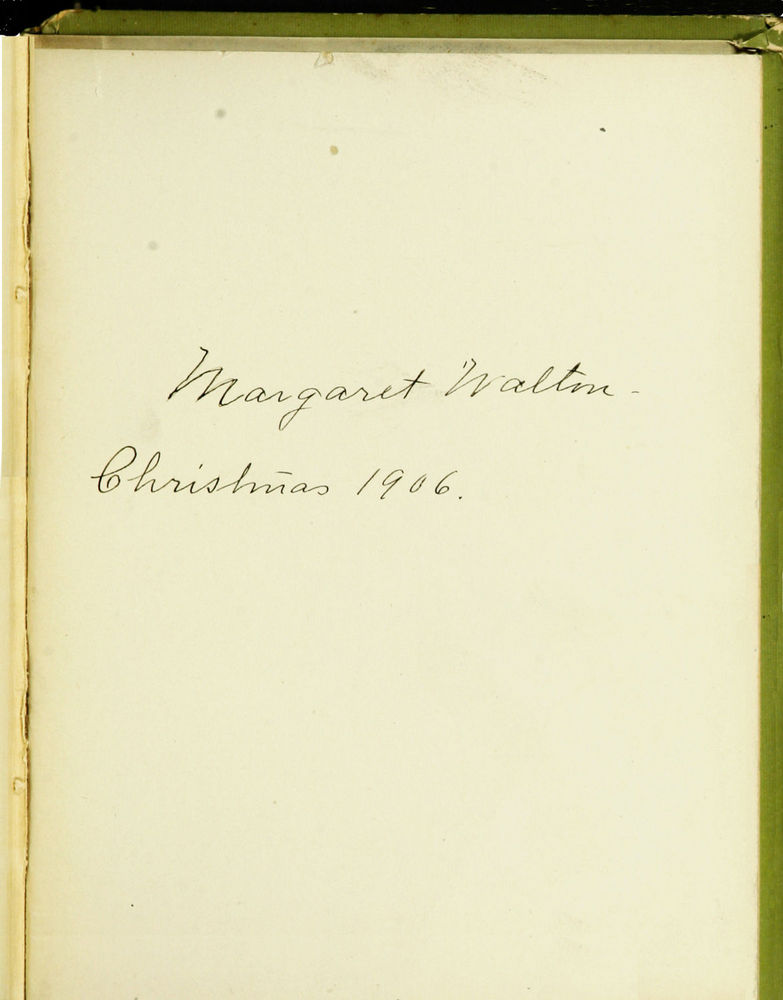 Margaret Walton -
Christmas 1906.